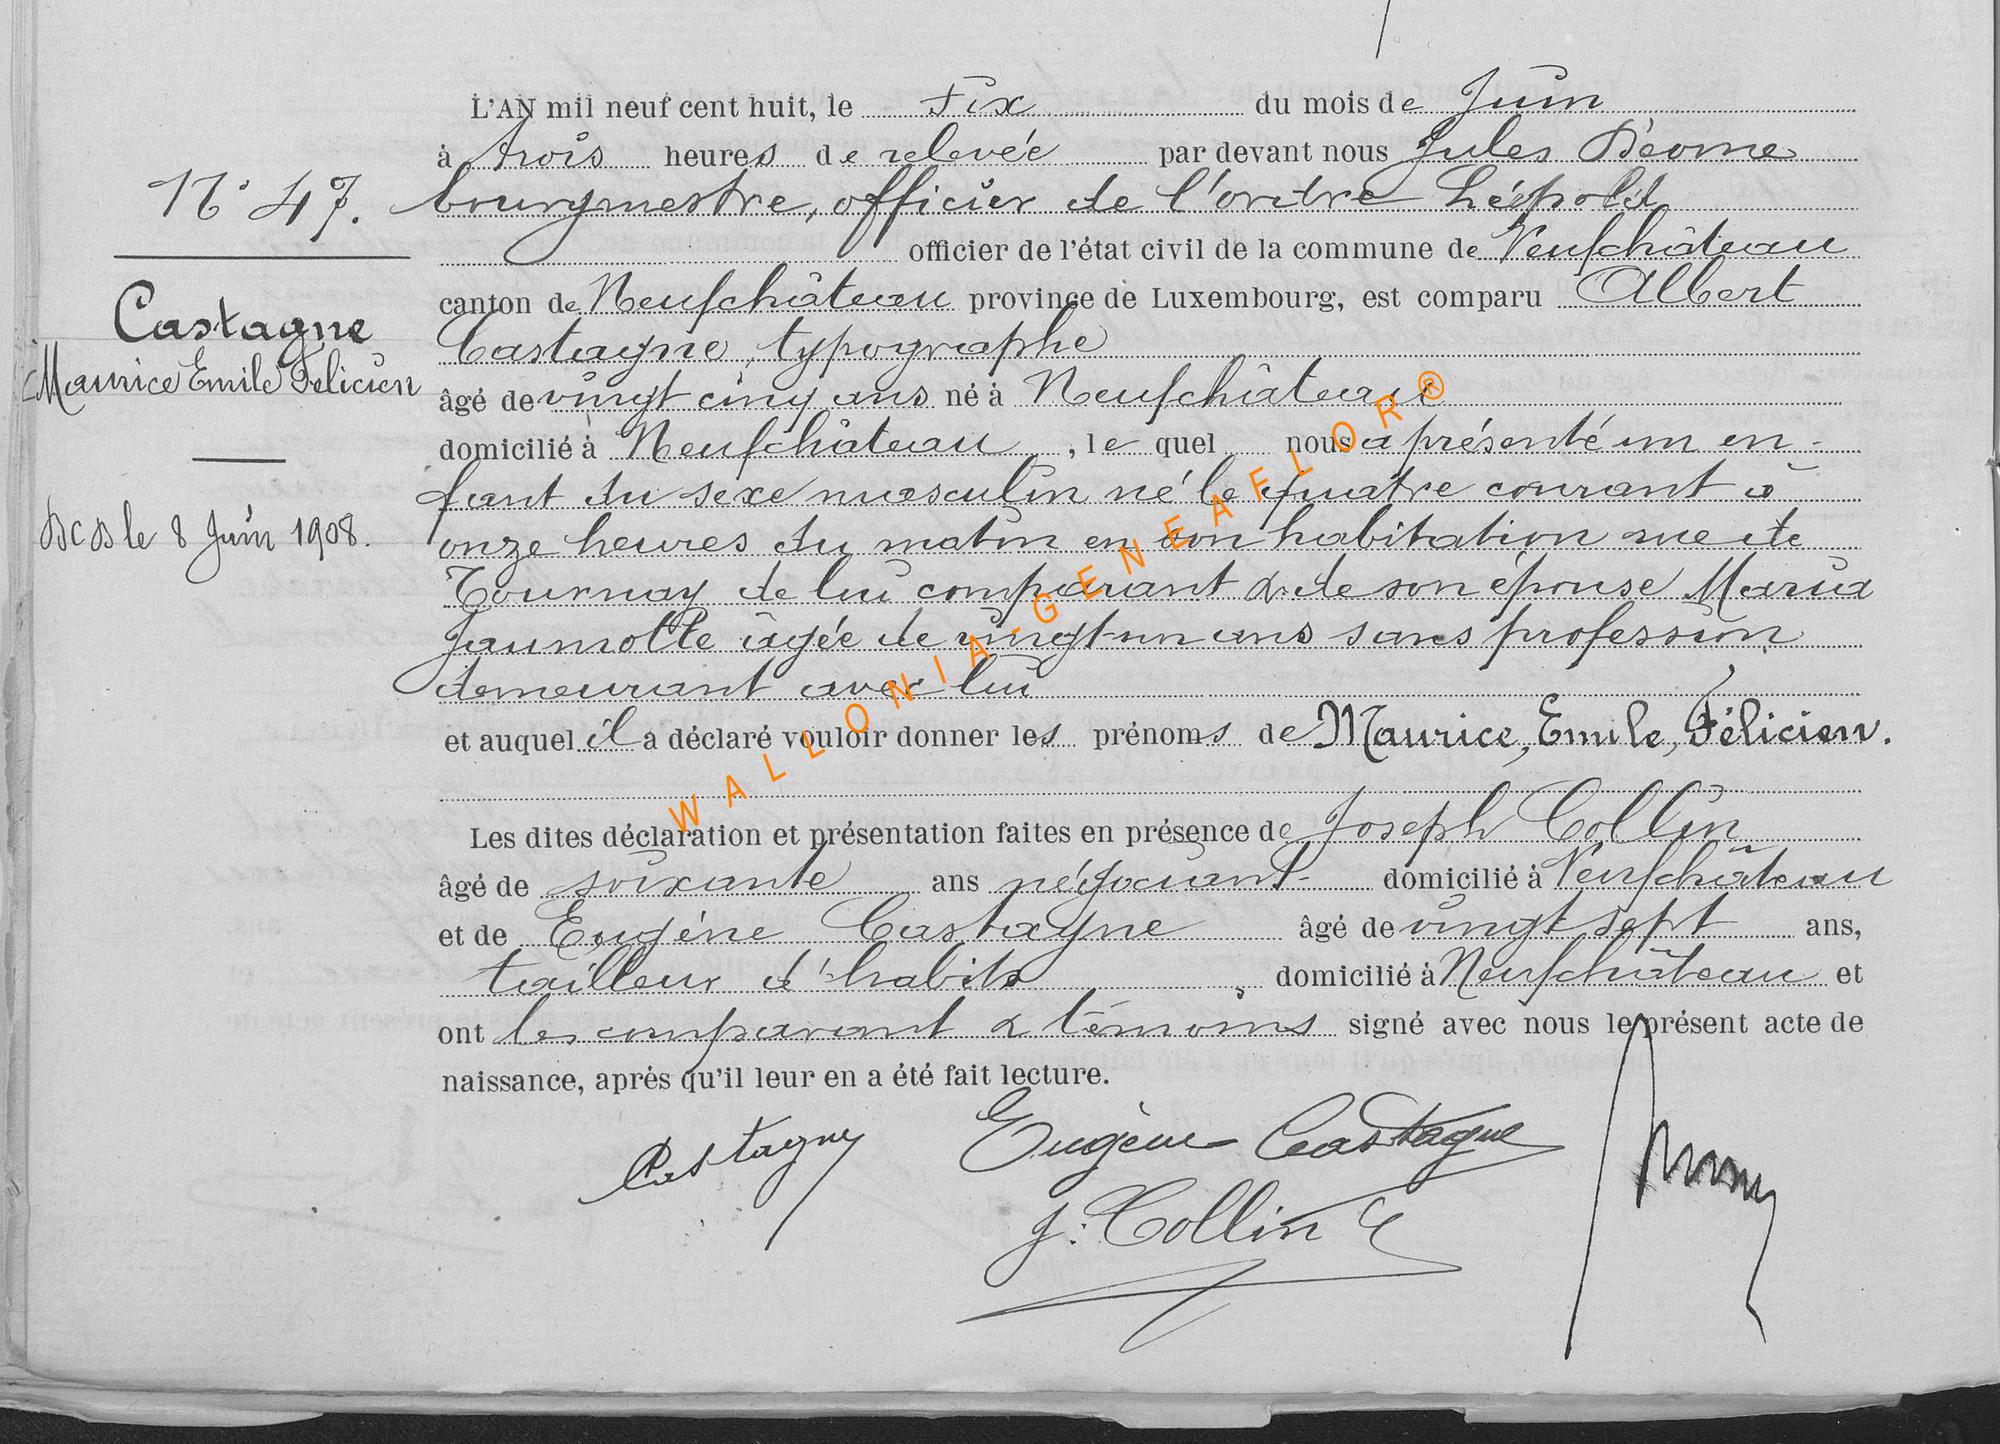 L'AN mil neuf cent huit, le six du mois de Juin
à trois heures de relevée par devant nous Jules
N° 47. bourgmestre, officier de l'ordre Léopold
officier de l'état civil de la commune de Neufchâteau
canton de Neufchâteau province de Luxembourg, est comparu Albert
Castagne
Castagne, typographe
Maurice Emile Félicien
âgé de vingt cinq ans né à Neufchâteau
domicilié à Neufchâteau, le quel nous a présenté un en-
fant du sexe masculin né le quatre courant à
le 8 Juin 1908.
onze heures du matin en son habitation rue de
Tournay de lui comparant & de son épouse Maria
Jaumotte âgée de vingt-un ans sans profession
demeurant avec lui
et auquel il a déclaré vouloir donner les prénoms de Maurice, Emile, Félicien.
Les dites déclaration et présentation faites en présence de Joseph Collin
âgé de soixante ans négociant domicilié à Neufchâteau
et de Eugène Castagne âgé de vingt sept ans,
tailleur d'habits domicilié à Neufchâteau et
ont les comparant & témoins signé avec nous le présent acte de
naissance, après qu'il leur en a été fait lecture.
Castagne
Eugène Castagne
J. Collin
WALLONIA-GENEAFLOR®